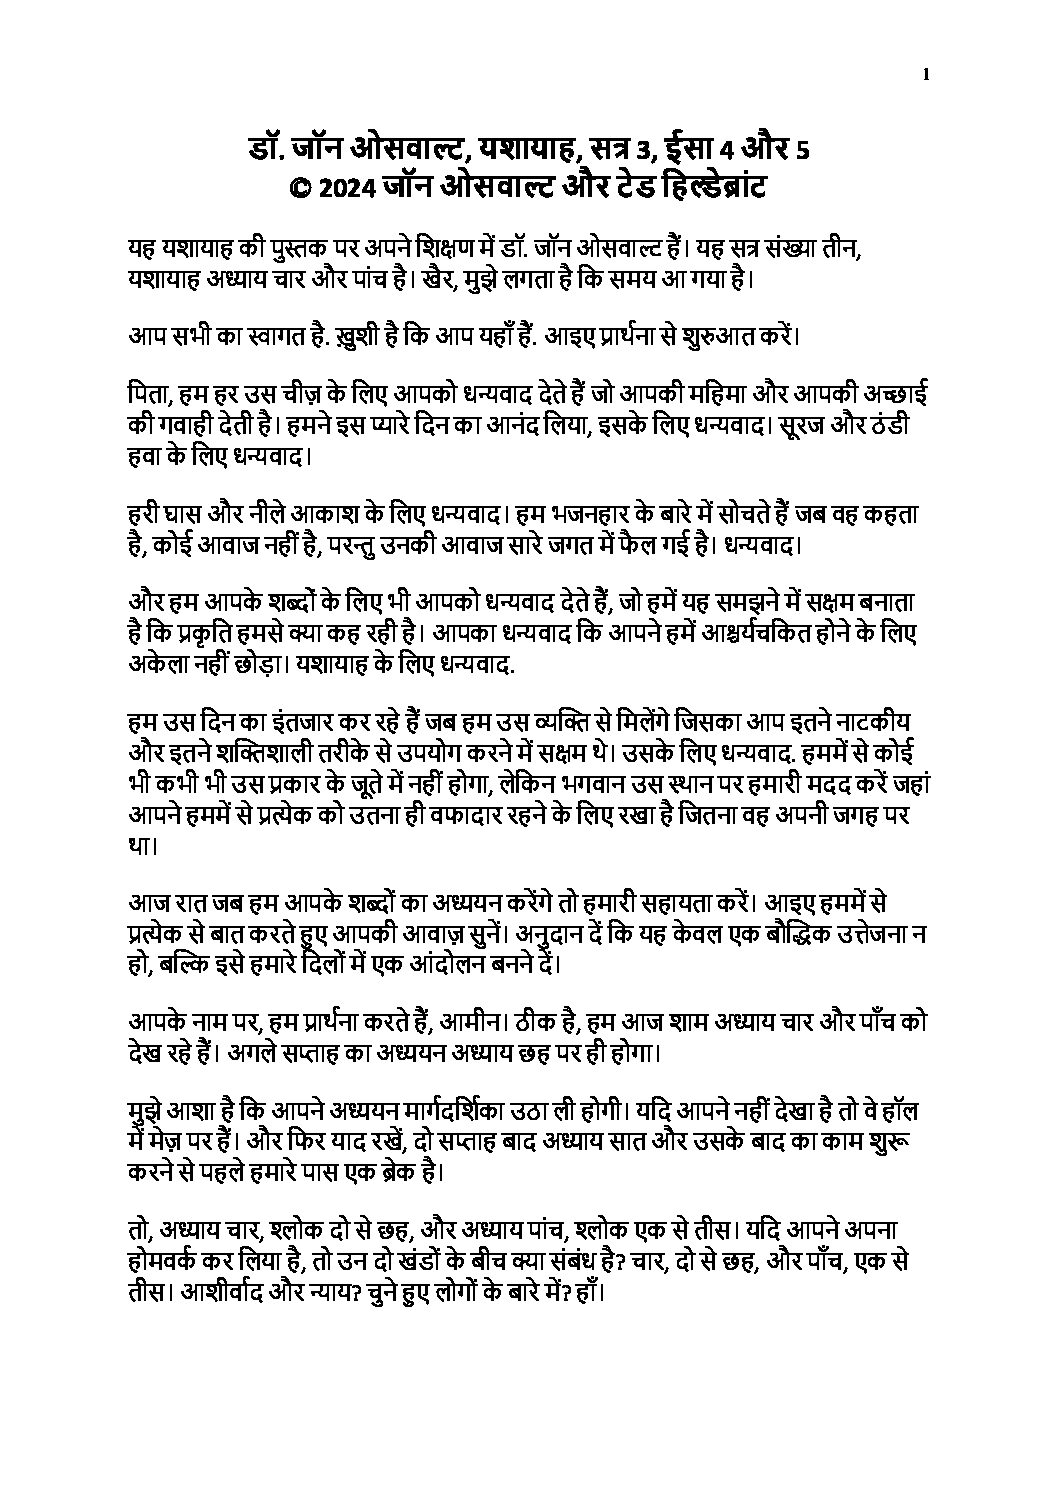 1
डॉ. जॉन ओसवाल्ट, यशायाह, सत्र 3, ईसा 4 और 5
© 2024 जॉन ओसवाल्ट और टेड हिल्डेब्रांट
यह यशायाह की पुस्तक पर अपने शिक्षण में डॉ. जॉन ओसवाल्ट हैं। यह सत्र संख्या तीन,
यशायाह अध्याय चार और पांच है। खैर, मुझे लगता है कि समय आ गया है।
आप सभी का स्वागत है. ख़ुशी है कि आप यहाँ हैं. आइए प्रार्थना से शुरुआत करें।
पिता, हम हर उस चीज़ के लिए आपको धन्यवाद देते हैं जो आपकी महिमा और आपकी अच्छाई
की गवाही देती है। हमने इस प्यारे दिन का आनंद लिया, इसके लिए धन्यवाद। सूरज और ठंडी
हवा के लिए धन्यवाद।
हरी घास और नीले आकाश के लिए धन्यवाद। हम भजनहार के बारे में सोचते हैं जब वह कहता
है, कोई आवाज नहीं है, परन्तु उनकी आवाज सारे जगत में फैल गई है। धन्यवाद।
और हम आपके शब्दों के लिए भी आपको धन्यवाद देते हैं, जो हमें यह समझने में सक्षम बनाता
है कि प्रकृति हमसे क्या कह रही है। आपका धन्यवाद कि आपने हमें आश्चर्यचकित होने के लिए
अकेला नहीं छोड़ा। यशायाह के लिए धन्यवाद.
हम उस दिन का इंतजार कर रहे हैं जब हम उस व्यक्ति से मिलेंगे जिसका आप इतने नाटकीय
और इतने शक्तिशाली तरीके से उपयोग करने में सक्षम थे। उसके लिए धन्यवाद. हममें से कोई
भी कभी भी उस प्रकार के जूते में नहीं होगा, लेकिन भगवान उस स्थान पर हमारी मदद करें जहां
आपने हममें से प्रत्येक को उतना ही वफादार रहने के लिए रखा है जितना वह अपनी जगह पर
था।
आज रात जब हम आपके शब्दों का अध्ययन करेंगे तो हमारी सहायता करें। आइए हममें से
प्रत्येक से बात करते हुए आपकी आवाज़ सुनें। अनुदान दें कि यह केवल एक बौद्धिक उत्तेजना न
हो, बल्कि इसे हमारे दिलों में एक आंदोलन बनने दें।
आपके नाम पर, हम प्रार्थना करते हैं, आमीन। ठीक है, हम आज शाम अध्याय चार और पाँच को
देख रहे हैं। अगले सप्ताह का अध्ययन अध्याय छह पर ही होगा।
मुझे आशा है कि आपने अध्ययन मार्गदर्शिका उठा ली होगी। यदि आपने नहीं देखा है तो वे हॉल
में मेज़ पर हैं। और फिर याद रखें, दो सप्ताह बाद अध्याय सात और उसके बाद का काम शुरू
करने से पहले हमारे पास एक ब्रेक है।
तो, अध्याय चार, श्लोक दो से छह, और अध्याय पांच, श्लोक एक से तीस। यदि आपने अपना
होमवर्क कर लिया है, तो उन दो खंडों के बीच क्या संबंध है? चार, दो से छह, और पाँच, एक से
तीस। आशीर्वाद और न्याय? चुने हुए लोगों के बारे में? हाँ।